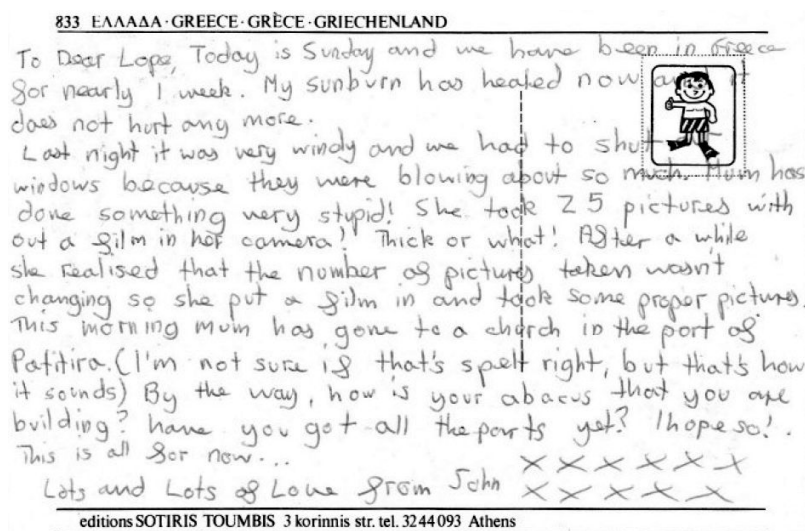 833 ΕΛΛΑΔΑ · GREECE · GRÈCE · GRIECHENLAND
To Dear Lope, Today is Sunday and we have been in Greece
for nearly 1 week. My sunburn has healed now and it
does not hurt any more.
Last night it was very windy and we had to shut
windows because they were blowing about so much. Mum has
done something very stupid! She took 25 pictures with
out a film in her camera! Thick or what! After a while
she realised that the number of pictures taken wasn't
changing so she put a film in and took some proper pictures.
This morning mum has gone to a church in the port of
Pafitira. (I'm not sure if that's spelt right, but that's how
it sounds) By the way, how is your abacus that you are
building? have you got all the parts yet? I hope so!.
This is all for now...
Lots and Lots of Love from John
x x x x x x
x x x x x
editions SOTIRIS TOUMBIS 3 korinnis str. tel. 3244093 Athens